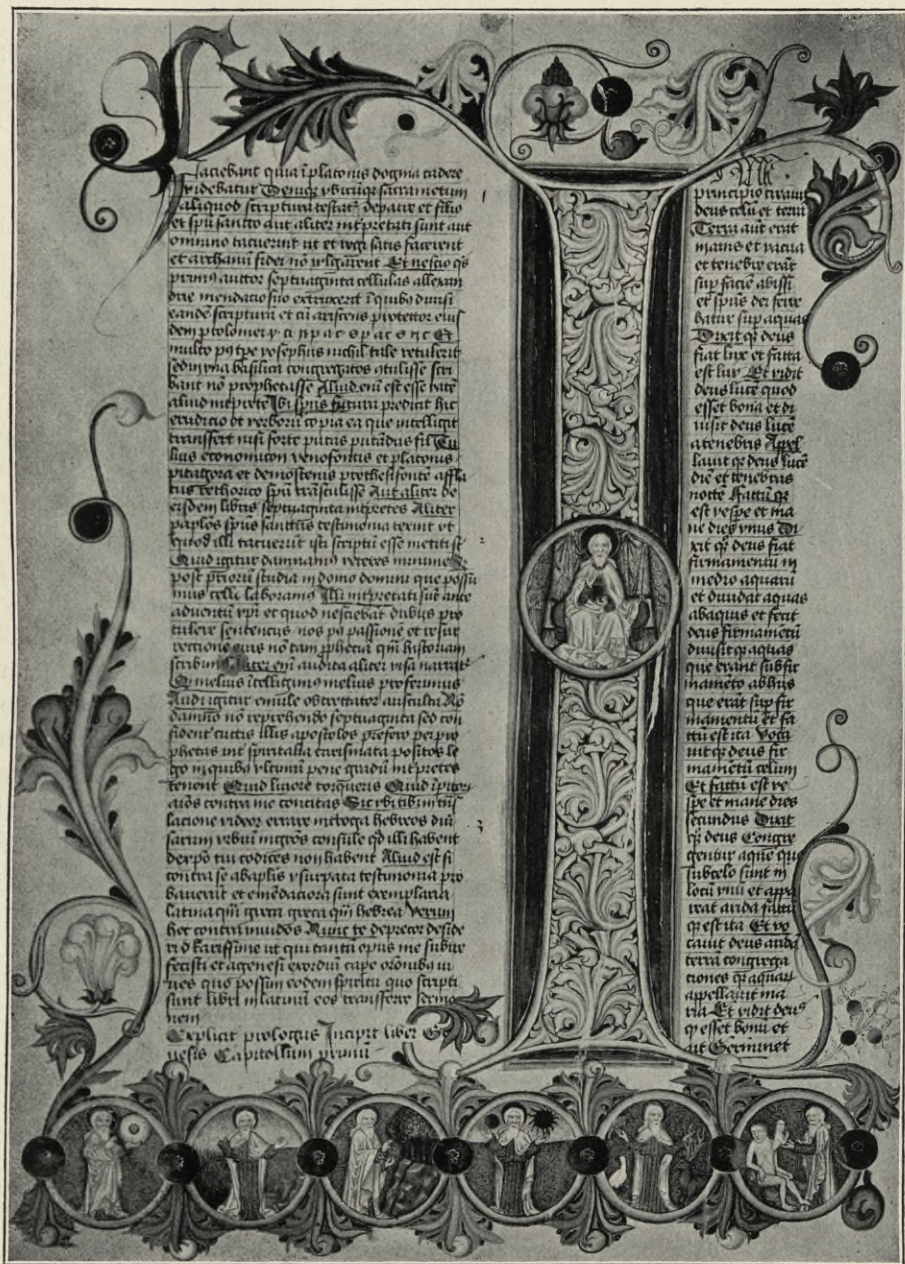 faciebant quia ī platonis dogma cadere
videbatur Deniqȝ vbicūqȝ sacramētum
aliquod scriptura testat᷑ de patre et filio
et spū sancto aut aliter īterpretati sunt aut
omnino tacuerint ut et regi satis facerent
et archanū fidei nō vlgarent Et nescio qs
primus auctor septuaginta cellulas allexan
drie mendacio suo extruxerit ī quibȝ diuisi
eandē scripturā et cū
dem ptolomei
multo pꝰ tpe yosephus nichil tale retulerit
sed in vna basilica congregatos ꝯtulisse scri
bant nō prophetasse Aliud eni est esse vatē
aliud īterpretē Ibi spūs futura predicit hic
erudicio et verborū copia ea que intelligit
transfert nisi forte putas putādus est Tu
lius economicon xenofontis et platonis
pitagora et demostenis prothesifontē affla
tus rethorico spū trāstulisse Aut aliter de
eisdem libris septuaginta īterpretes Aliter
p aplos spūs sanctus testimonia texuit vt
quod illi tacuerūt isti scriptū esse metiti st̄
Quid igitur damnamȝ veteres minime Sȝ
post priorū studia in domo domini que possu
mus celle laboramȝ Illi īterpretati sūt ante
aduentū xp̄i et quod nesciebāt dubijs pro
tulere sentencijs nos pꝰ passionē et resur
rectione eius nō tam prophetiā qm̄ historiam
scribimȝ Aliter eni audita aliter visa narrāt᷑
Q melius ītelligimȝ melius proferimus
Audi igitur emule obtrectator ausculta Nō
damno nō reprehendo septuaginta sed con
fident cūctis illis apostolos prefero per pro
phetas
go in quibȝ vltimū pene gradū īterpretes
tenent Quid liuore torqueris Quid īperitor
aīos contra me concitas Sic vbi tibi in trās
lacione videor errare introga hebreos diū
sarum vrbiū mgros consule qd illi habent
de xpō tui codices non habent Aliud est si
contra se ab aplis vsurpata testimonia pro
bauerūt et emēdaciora sunt exemplaria
latina qm̄ greca greca qm̄ hebrea Verum
hec contra inuidos Nunc te deprecor deside
ri d karissime ut qui tantū opus me subire
fecisti et a genesi exordiū cape orōnibȝ iu
ues quo possim eodem spiritu quo scripti
sunt libri in latinū eos transferre sermo
nem
Explicit prologus Incipit liber Ge
nesis Capitullum primū
IN
principio creauit
deus celū et terrā
Terra aūt erat
inanis et vacua
et tenebre erāt
sup faciē abissi
et spūs dei ferre
batur sup aquas
Dixit qȝ deus
fiat lux et facta
est lux Et vidit
deus lucē quod
esset bona et di
uisit deus lucē
a tenebris Appel
lauit qȝ deus lucē
diē et tenebras
nocte Factū qȝ
est vespe et ma
ne dies vnus Di
xit qȝ deus fiat
firmamentū in
medio aquarū
et diuidat aquas
ab aquis et fecit
deus firmamētū
diuisit qȝ aquas
que erant sub fir
mamēto ab his
que erāt sup fir
mamentū et fa
ctū est ita Voca
uit qȝ deus fir
mamētū celum
Et factū est ve
spe et mane dies
secundus Dixit
qȝ deus Congre
gentur aque que
sub celo sunt in
locū vnū et appa
reat arida factū
qȝ est ita Et vo
cauit deus aridā
terrā congrega
ciones qȝ aquarū
appellauit ma
ria Et vidit deus
qȝ esset bonū et
ait Germinet